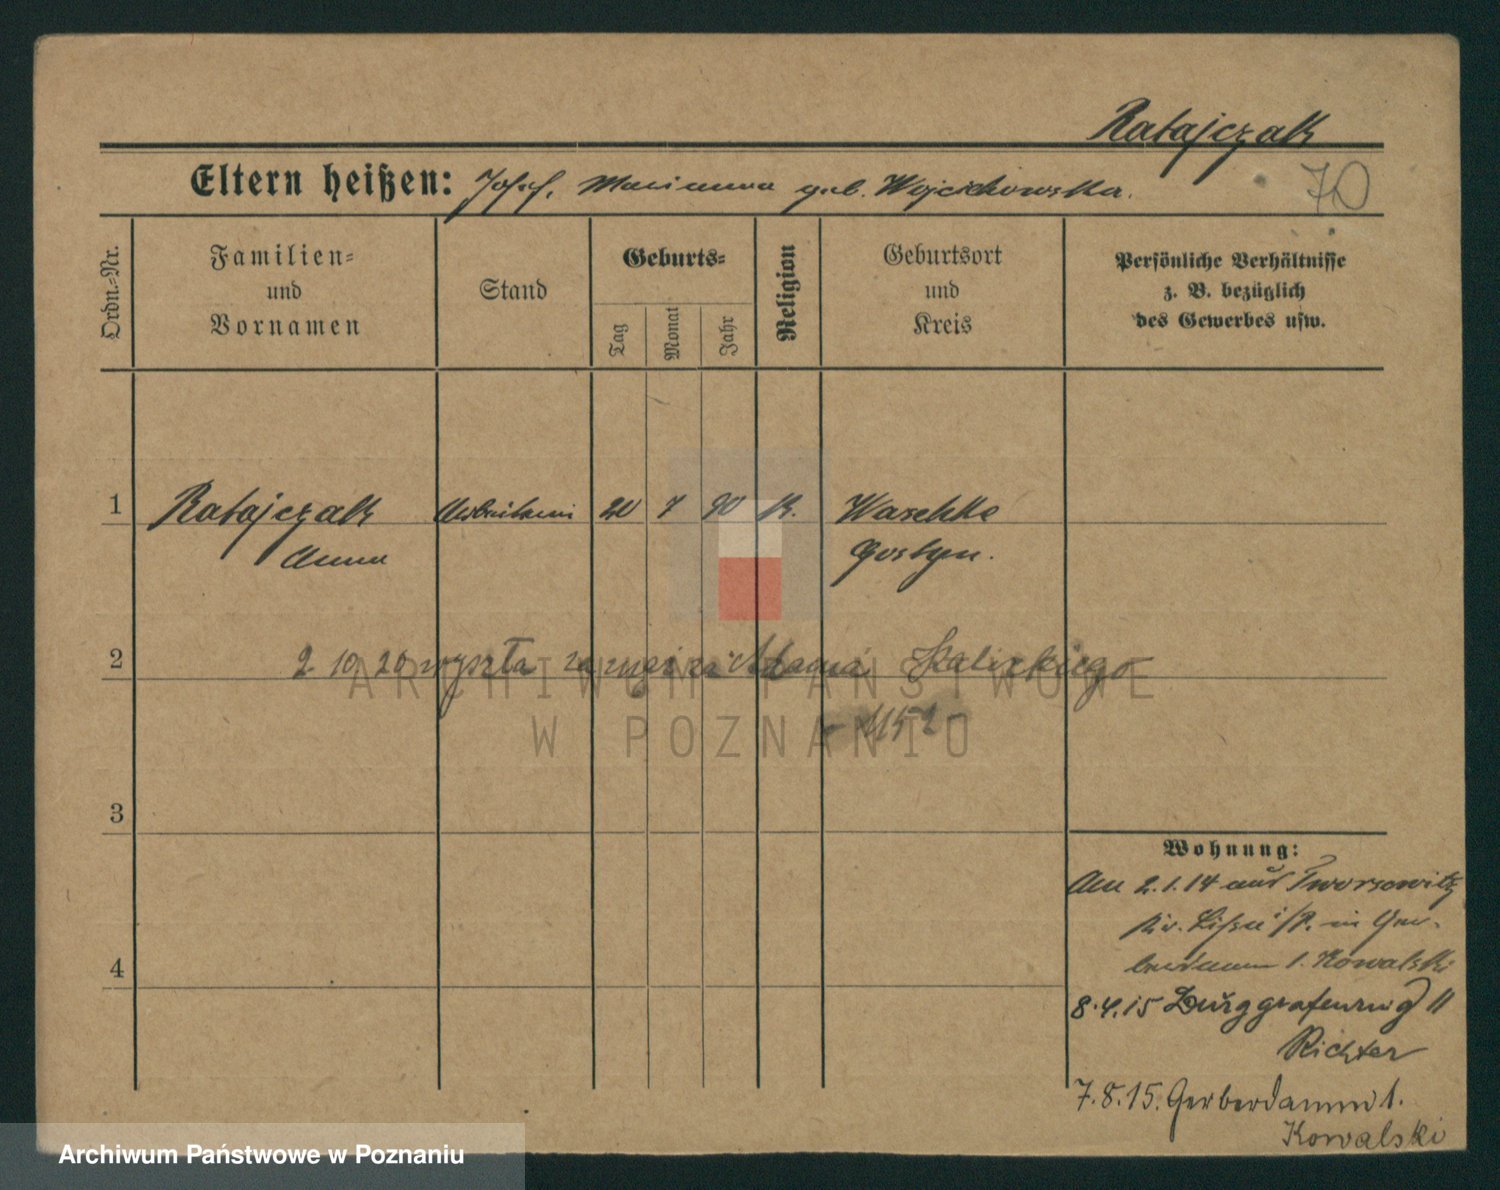 Ratajczak
Eltern heißen: Josef, Marianna geb. Wojcichowska.
70
Ordn.-Nr.
Familien-
und
Vornamen
Stand
Geburts-
Tag
Monat
Jahr
Religion
Geburtsort
und
Kreis
Persönliche Verhältnisse
z. B. bezüglich
des Gewerbes usw.
1 Ratajczak Arbeiterin 20 7 90 K. Waschke
Anna Gostyn.
2 2 10 20 wyszła za mąż za Adama Skalskiego
ARCHIWUM PAŃSTWOWE
W POZNANIU
3
4
Wohnung:
Am 2.1.14 aus Tworsewitz
Kr. Lissa i/P. in Ger-
berdamm 1. Kowalski
8.4.15 Burggrafenring 11
Richter
7.8.15. Gerberdamm 1.
Kowalski
Archiwum Państwowe w Poznaniu